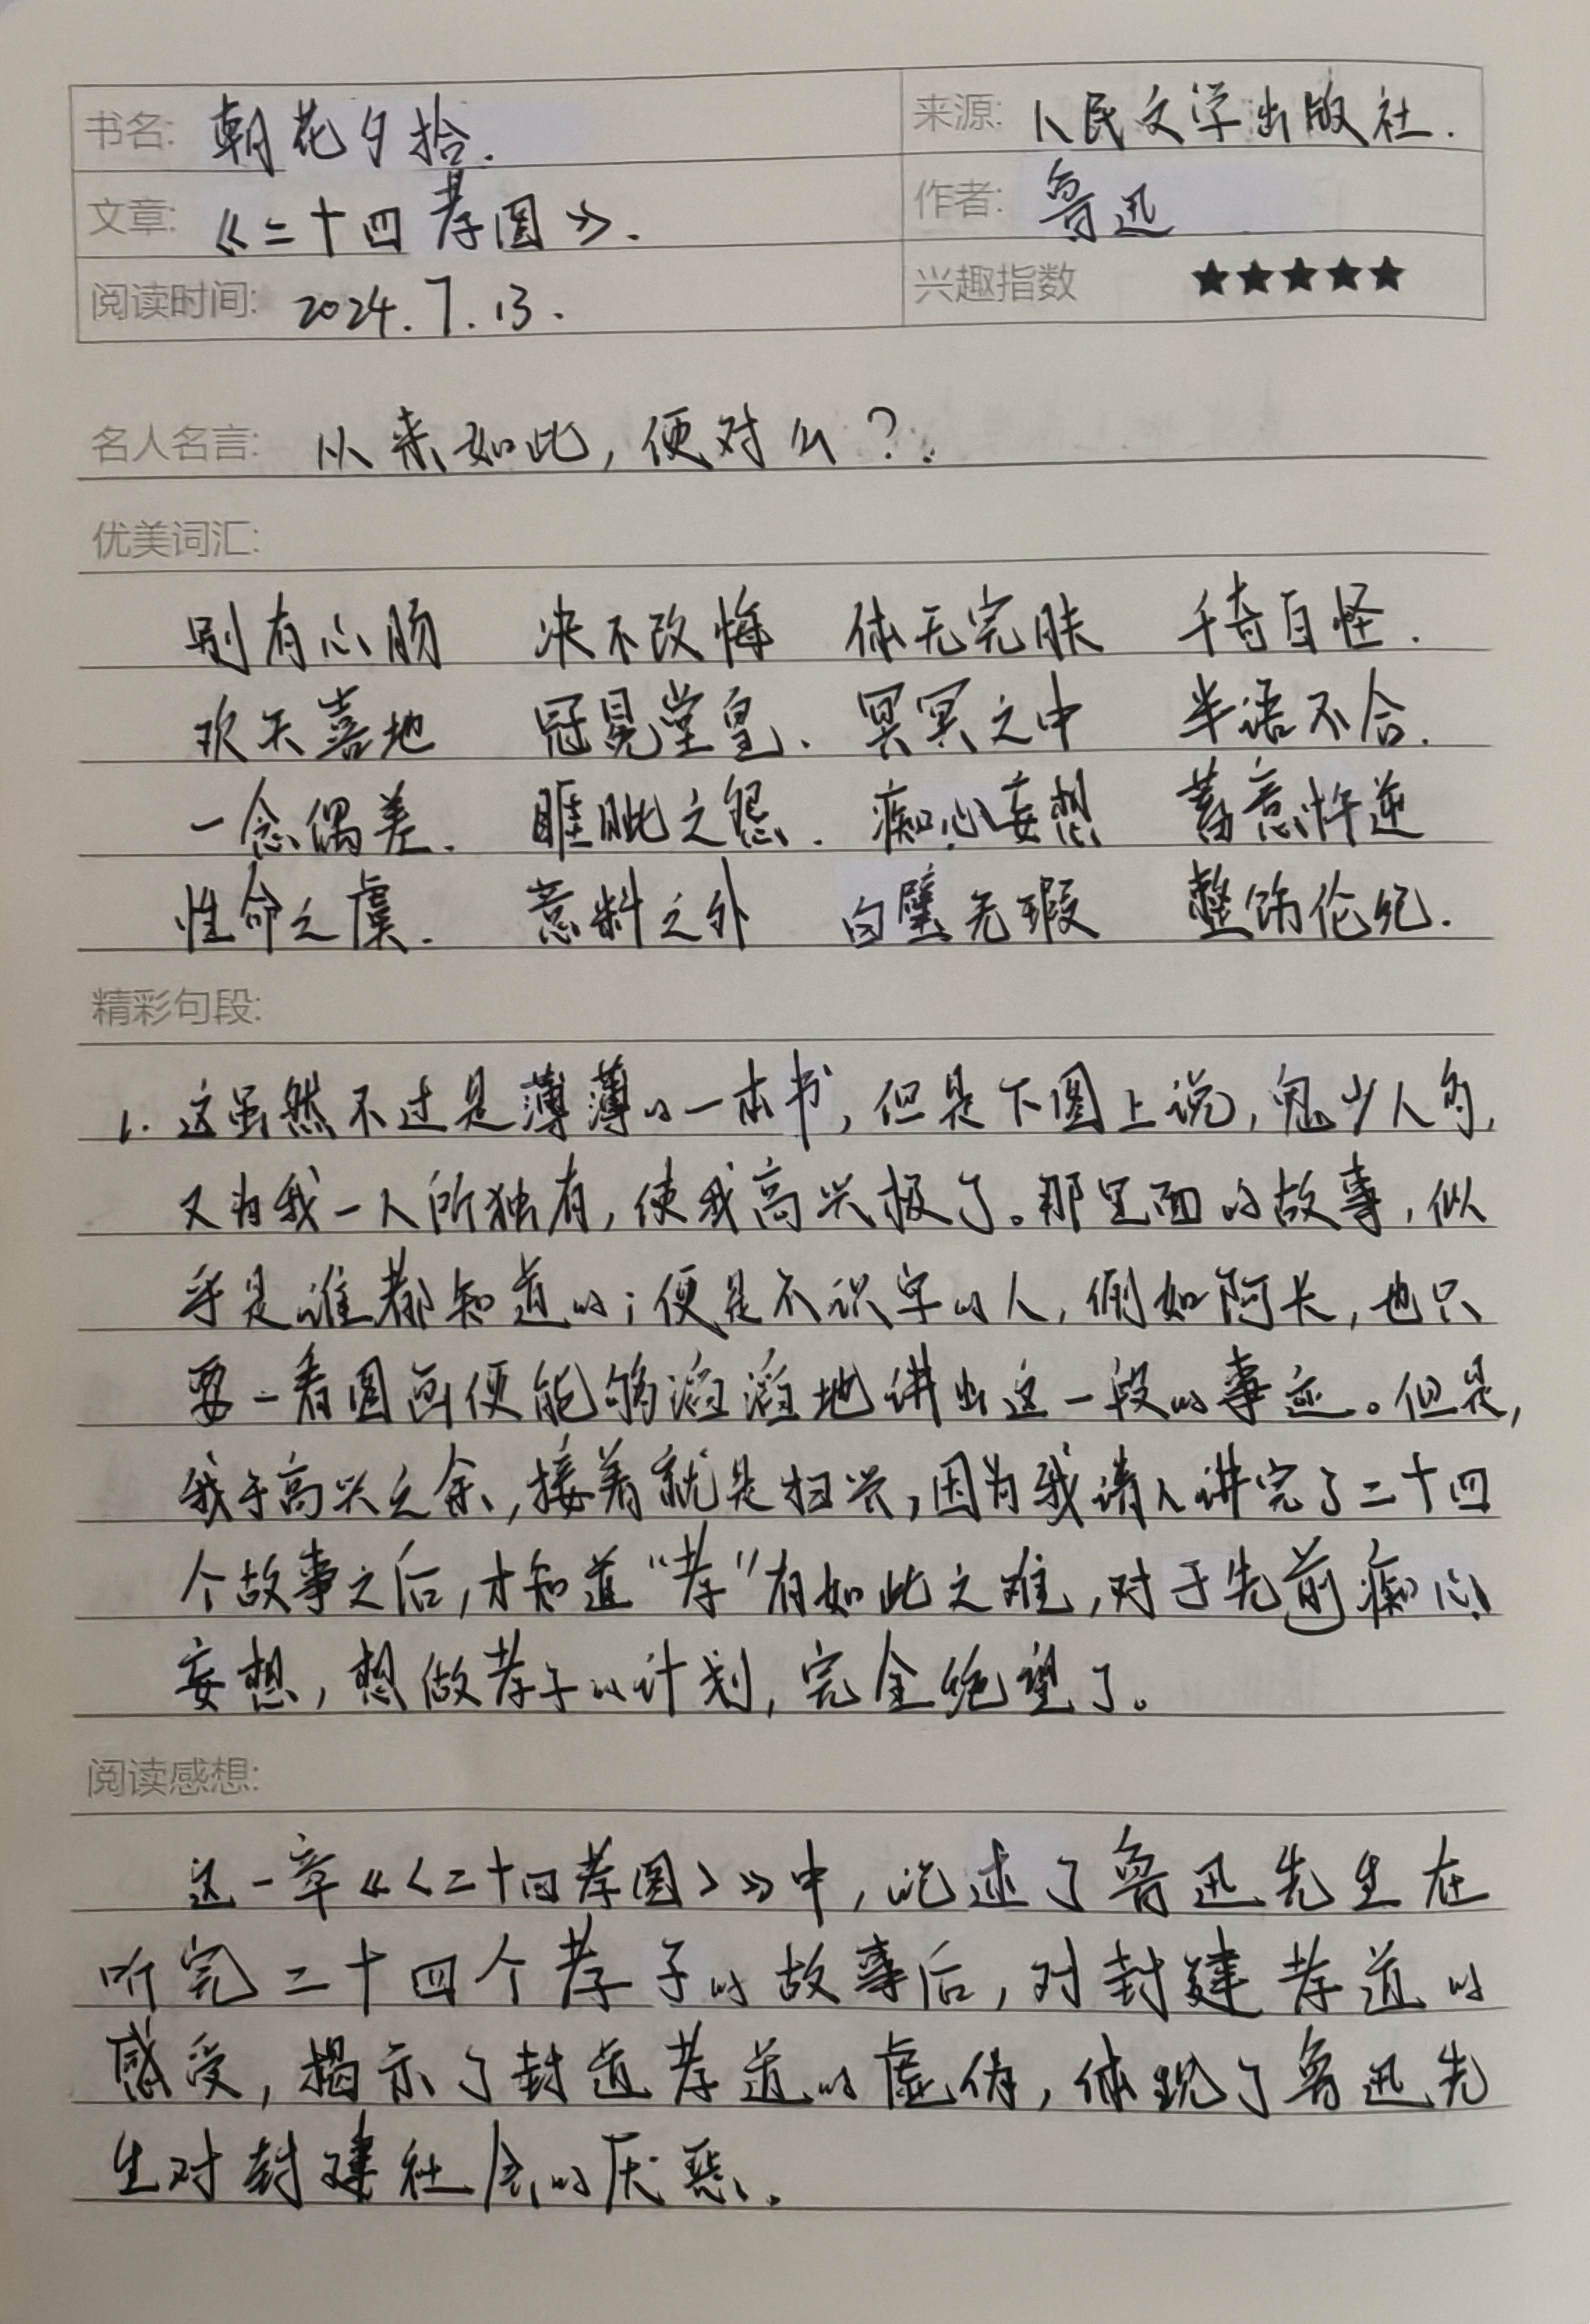 书名: 朝花夕拾. 来源: 人民文学出版社.
文章: 《二十四孝图》. 作者: 鲁迅
阅读时间: 2024.7.13. 兴趣指数 ★★★★★
名人名言: 从来如此,便对么?.
优美词汇:
别有心肠 决不改悔 体无完肤 千奇百怪.
欢天喜地 冠冕堂皇、 冥冥之中 半语不合.
一念偶差. 睚眦之怨. 痴心妄想 蓄意忤逆
性命之虞. 意料之外 白璧无瑕 整饬伦纪.
精彩句段:
1. 这虽然不过是薄薄的一本书,但是下图上说,鬼少人多,
又为我一人所独有,使我高兴极了。那里面的故事,似
乎是谁都知道的;便是不识字的人,例如阿长,也只
要一看图画便能够滔滔地讲出这一段的事迹。但是,
我于高兴之余,接着就是扫兴,因为我请人讲完了二十四
个故事之后,才知道“孝”有如此之难,对于先前痴心
妄想,想做孝子的计划,完全绝望了。
阅读感想:
这一章《〈二十四孝图〉》中,记述了鲁迅先生在
听完二十四个孝子的故事后,对封建孝道的
感受,揭示了封道孝道的虚伪,体现了鲁迅先
生对封建社会的厌恶.